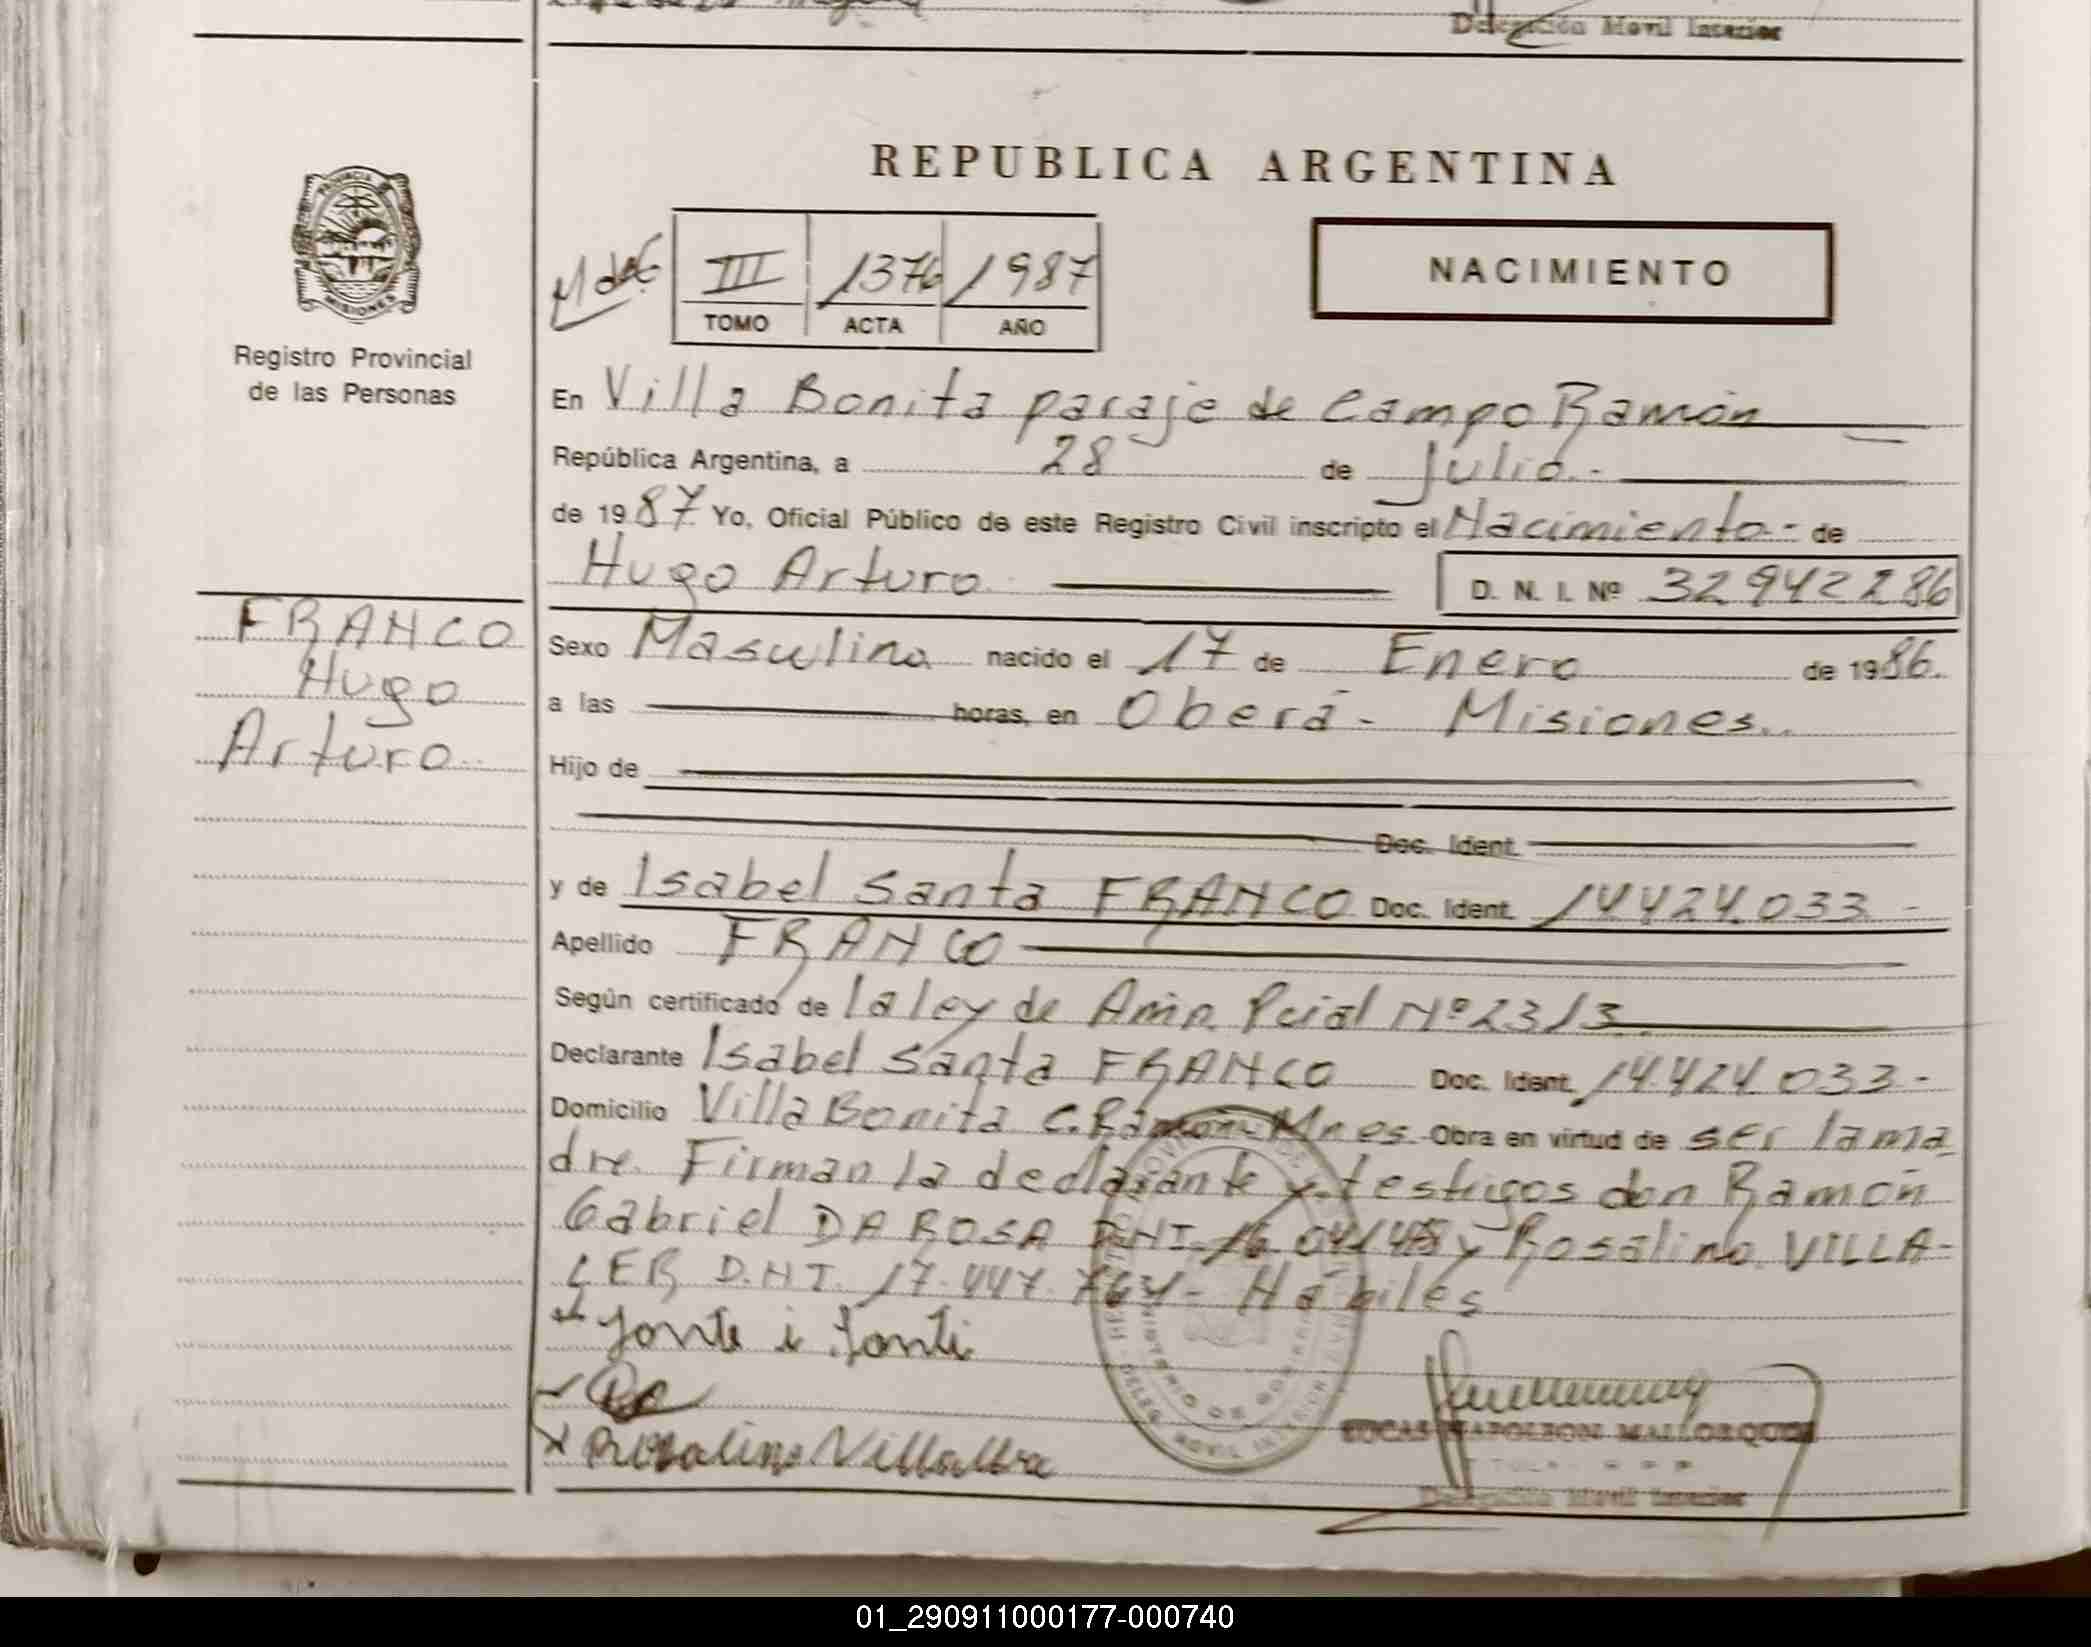 Delegación Movil Interior
REPUBLICA ARGENTINA
PROVINCIA
MISIONES
Registro Provincial
de las Personas
III 1376 1987
TOMO ACTA AÑO
NACIMIENTO
En Villa Bonita paraje de Campo Ramón
República Argentina, a 28 de Julio.-
de 1987 Yo, Oficial Público de este Registro Civil inscripto el Nacimiento- de
Hugo Arturo D. N. I. Nº 32942286
FRANCO
Hugo
Arturo
Sexo Masulino nacido el 17 de Enero de 1986.
a las horas, en Oberá- Misiones.
Hijo de
Doc. Ident.
y de Isabel Santa FRANCO Doc. Ident. 14424.033-
Apellido FRANCO
Según certificado de la ley de Amn Pcial Nº 2313
Declarante Isabel Santa FRANCO Doc. Ident. 14.424.033-
Domicilio Villa Bonita C. Ramón-Mnes. Obra en virtud de ser la ma
dre. Firman la declarante y testigos don Ramón
Gabriel DA ROSA D.N.I. 16.041.48 y Rosalino VILLA-
LER D.N.I. 17.447.764- Hábiles
Rosalino Villalba
LUCAS NAPOLEON MALLORQUIN
Delegación Movil Interior
01_290911000177-000740